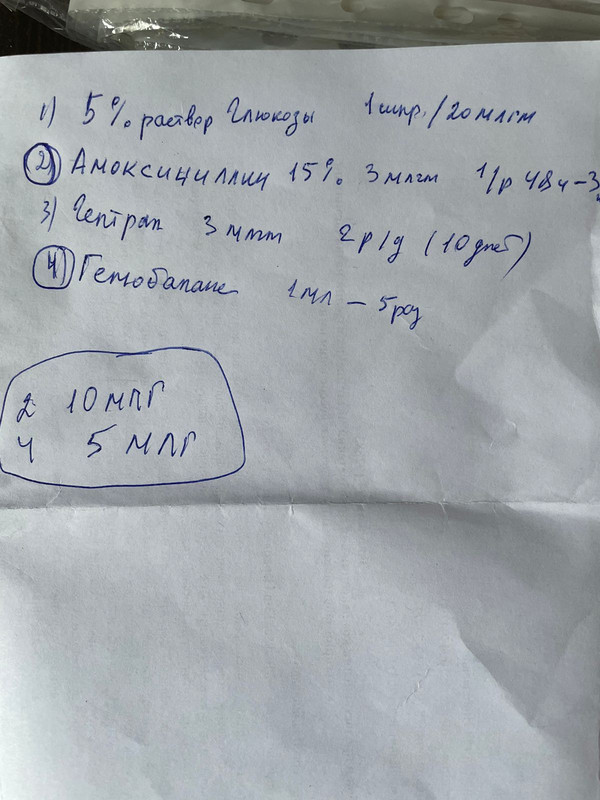 1) 5% раствор Глюкозы 1 шпр./20 млгм
2) Амоксициллин 15% 3 млгм 1/р
3) Гептрал 3 млгм 2р/д (10 дней)
4) Гемобаланс 1 мл – 5 раз
2 10 млг
4 5 млг